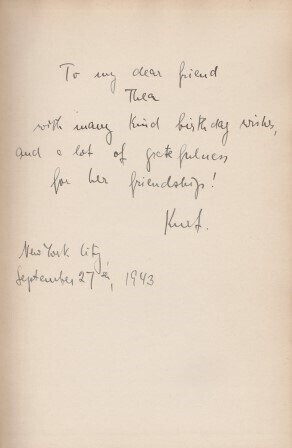 To my dear friend
Thea
with many kind birthday wishes,
and a lot of gratefulness
for her friendship!
Kurt.
New York City,
September 27th, 1943